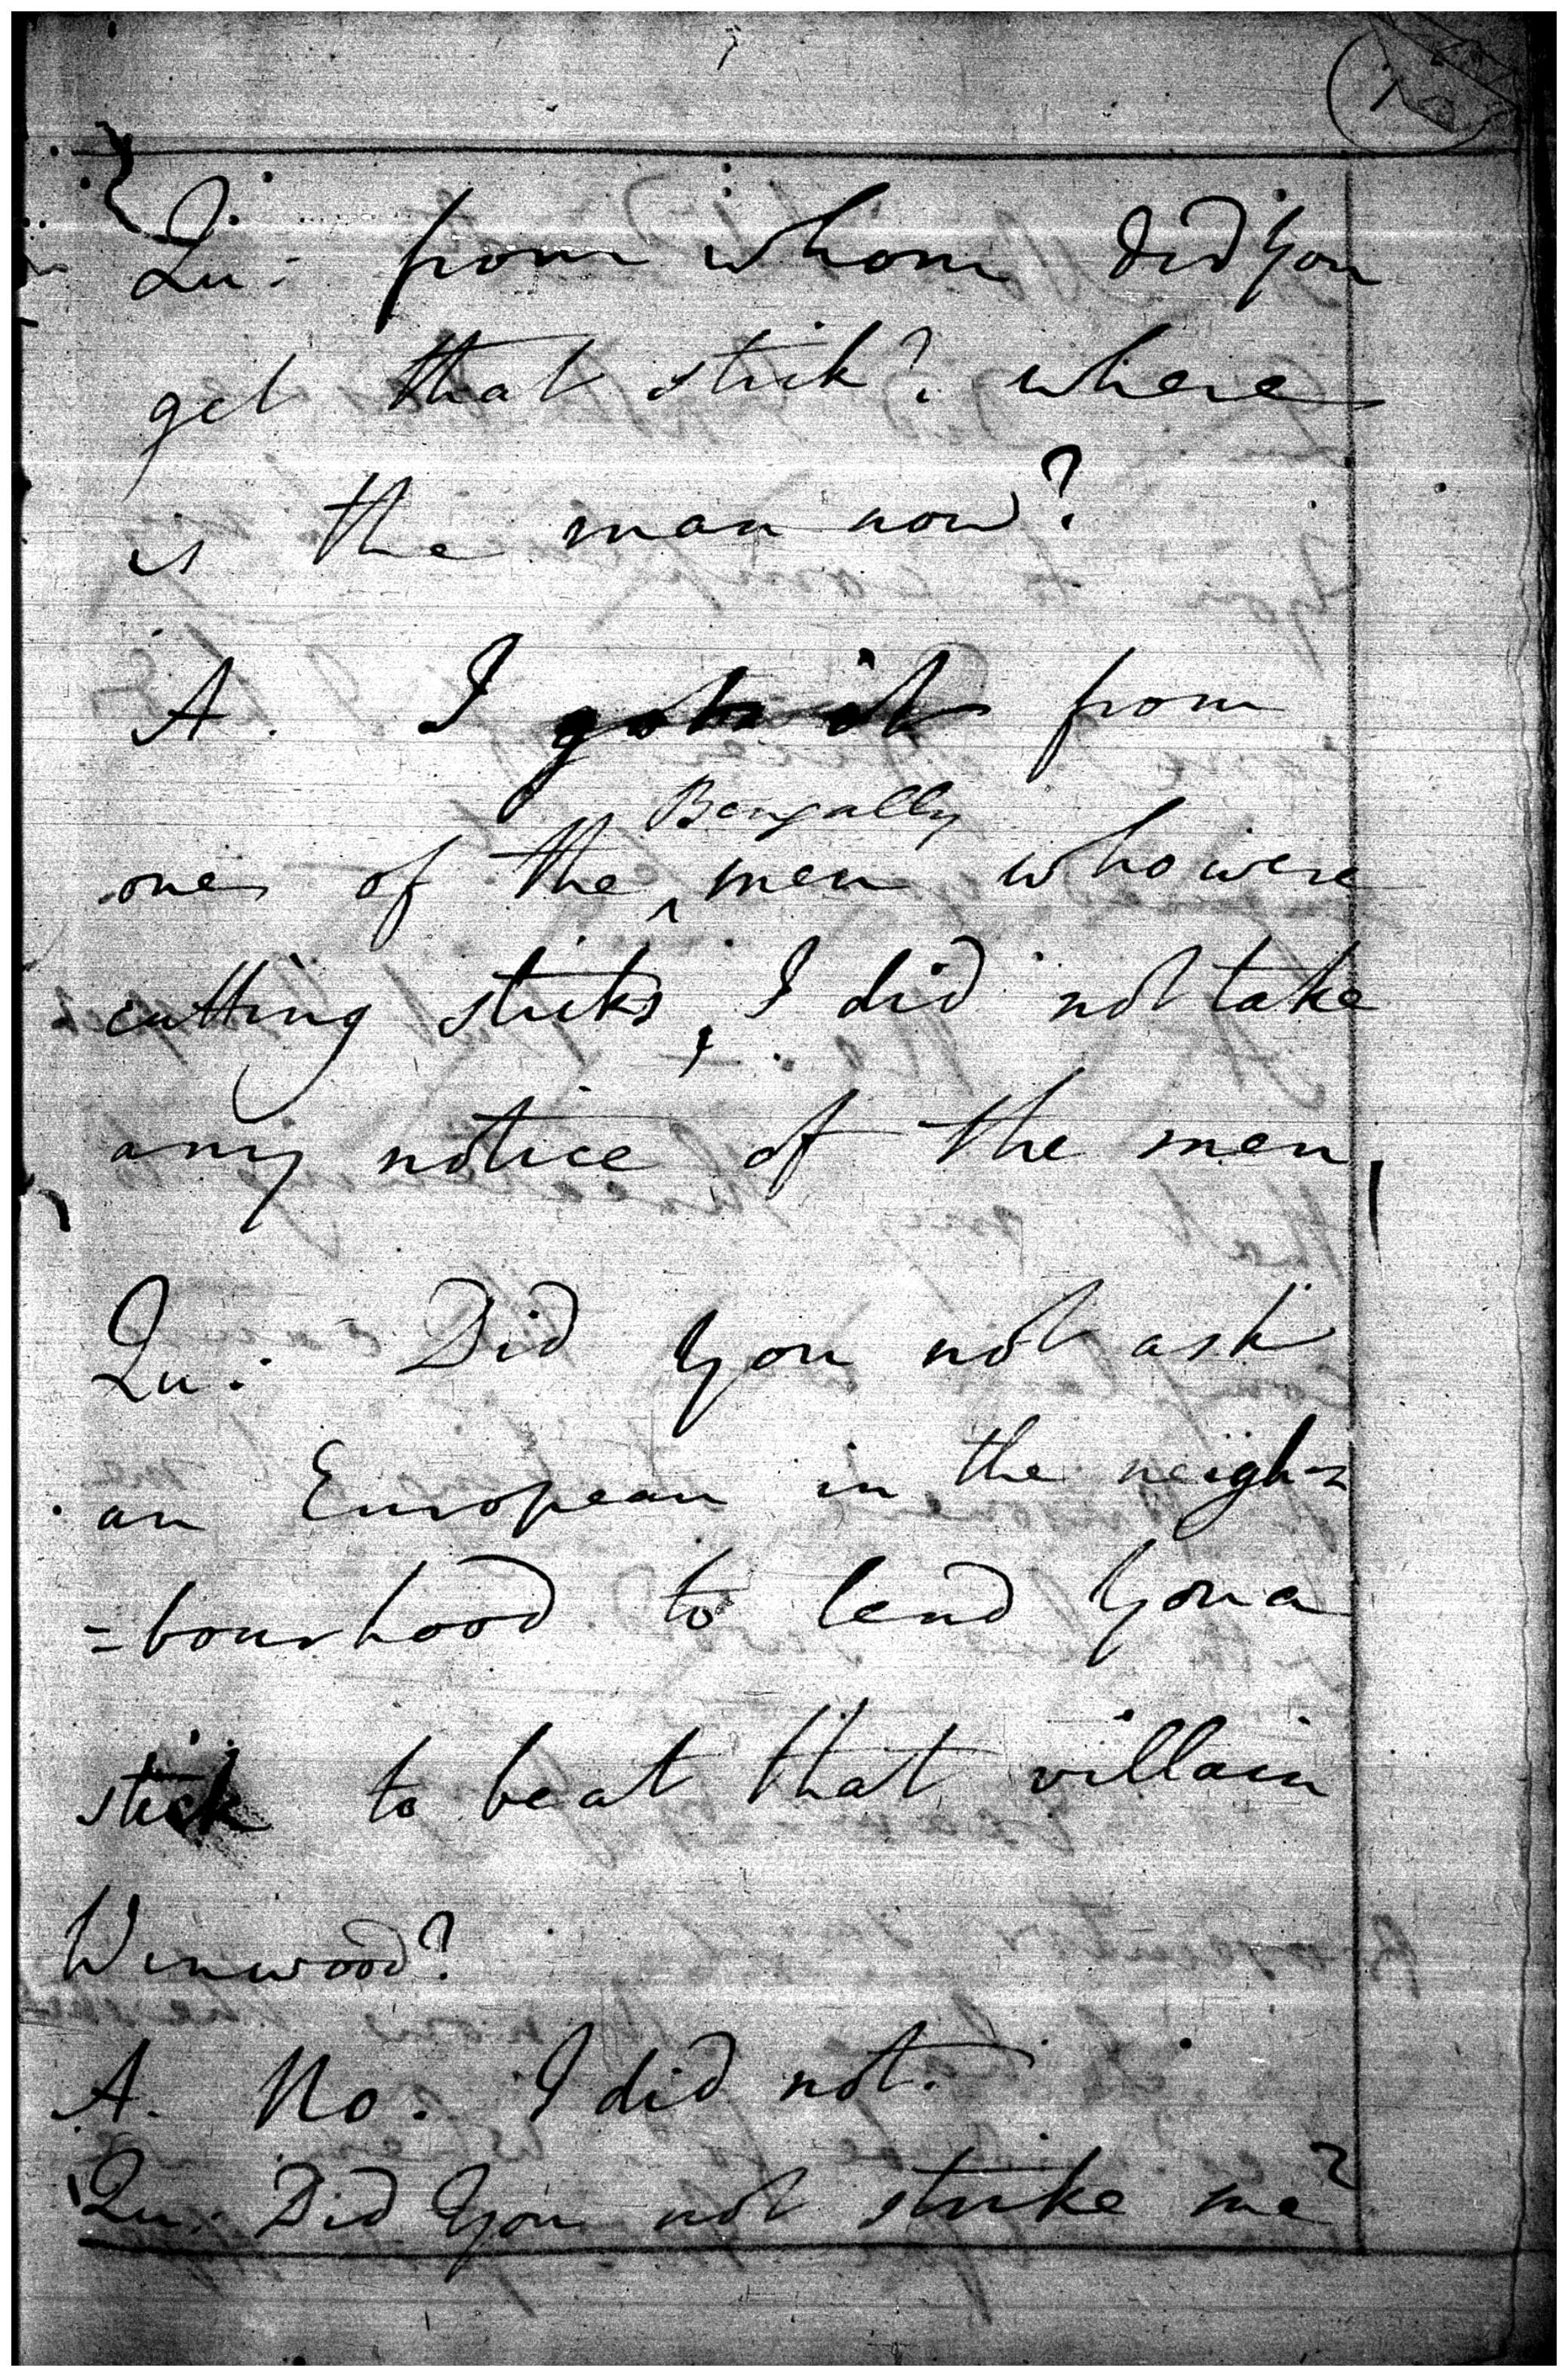 Qu: from whom did you
get that stick? where
is the man now?
A. I got it from
Bengally
one of the ^ men who were
cutting sticks, I did not take
any notice of the men,
Qu: Did you not ask
an European in the neigh=
=bourhood to lend you a
stick to beat that villain
Winwood?
A. No. I did not.
Qu: Did you not strike me?